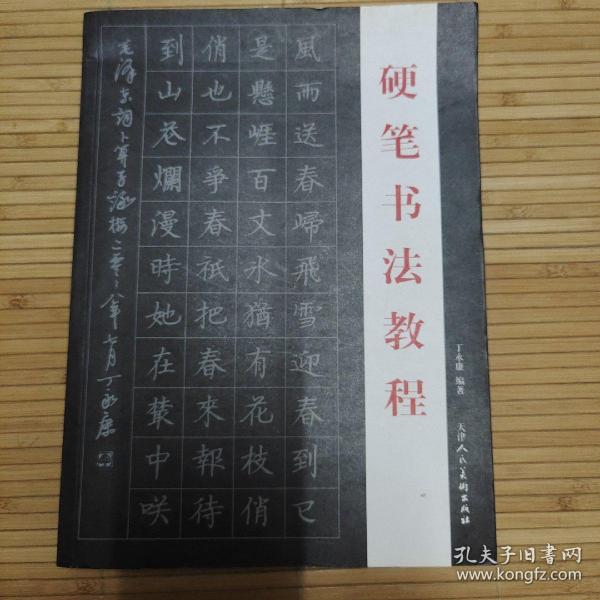 硬笔书法教程
丁永康 编著
天津人民美術出版社
風雨送春歸飛雪迎春到已
是懸崖百丈冰猶有花枝俏
俏也不爭春祇把春來報待
到山花爛漫時她在叢中咲
毛泽东词卜算子詠梅二零〻八年七月丁永康
孔夫子旧书网
www.kongfz.com